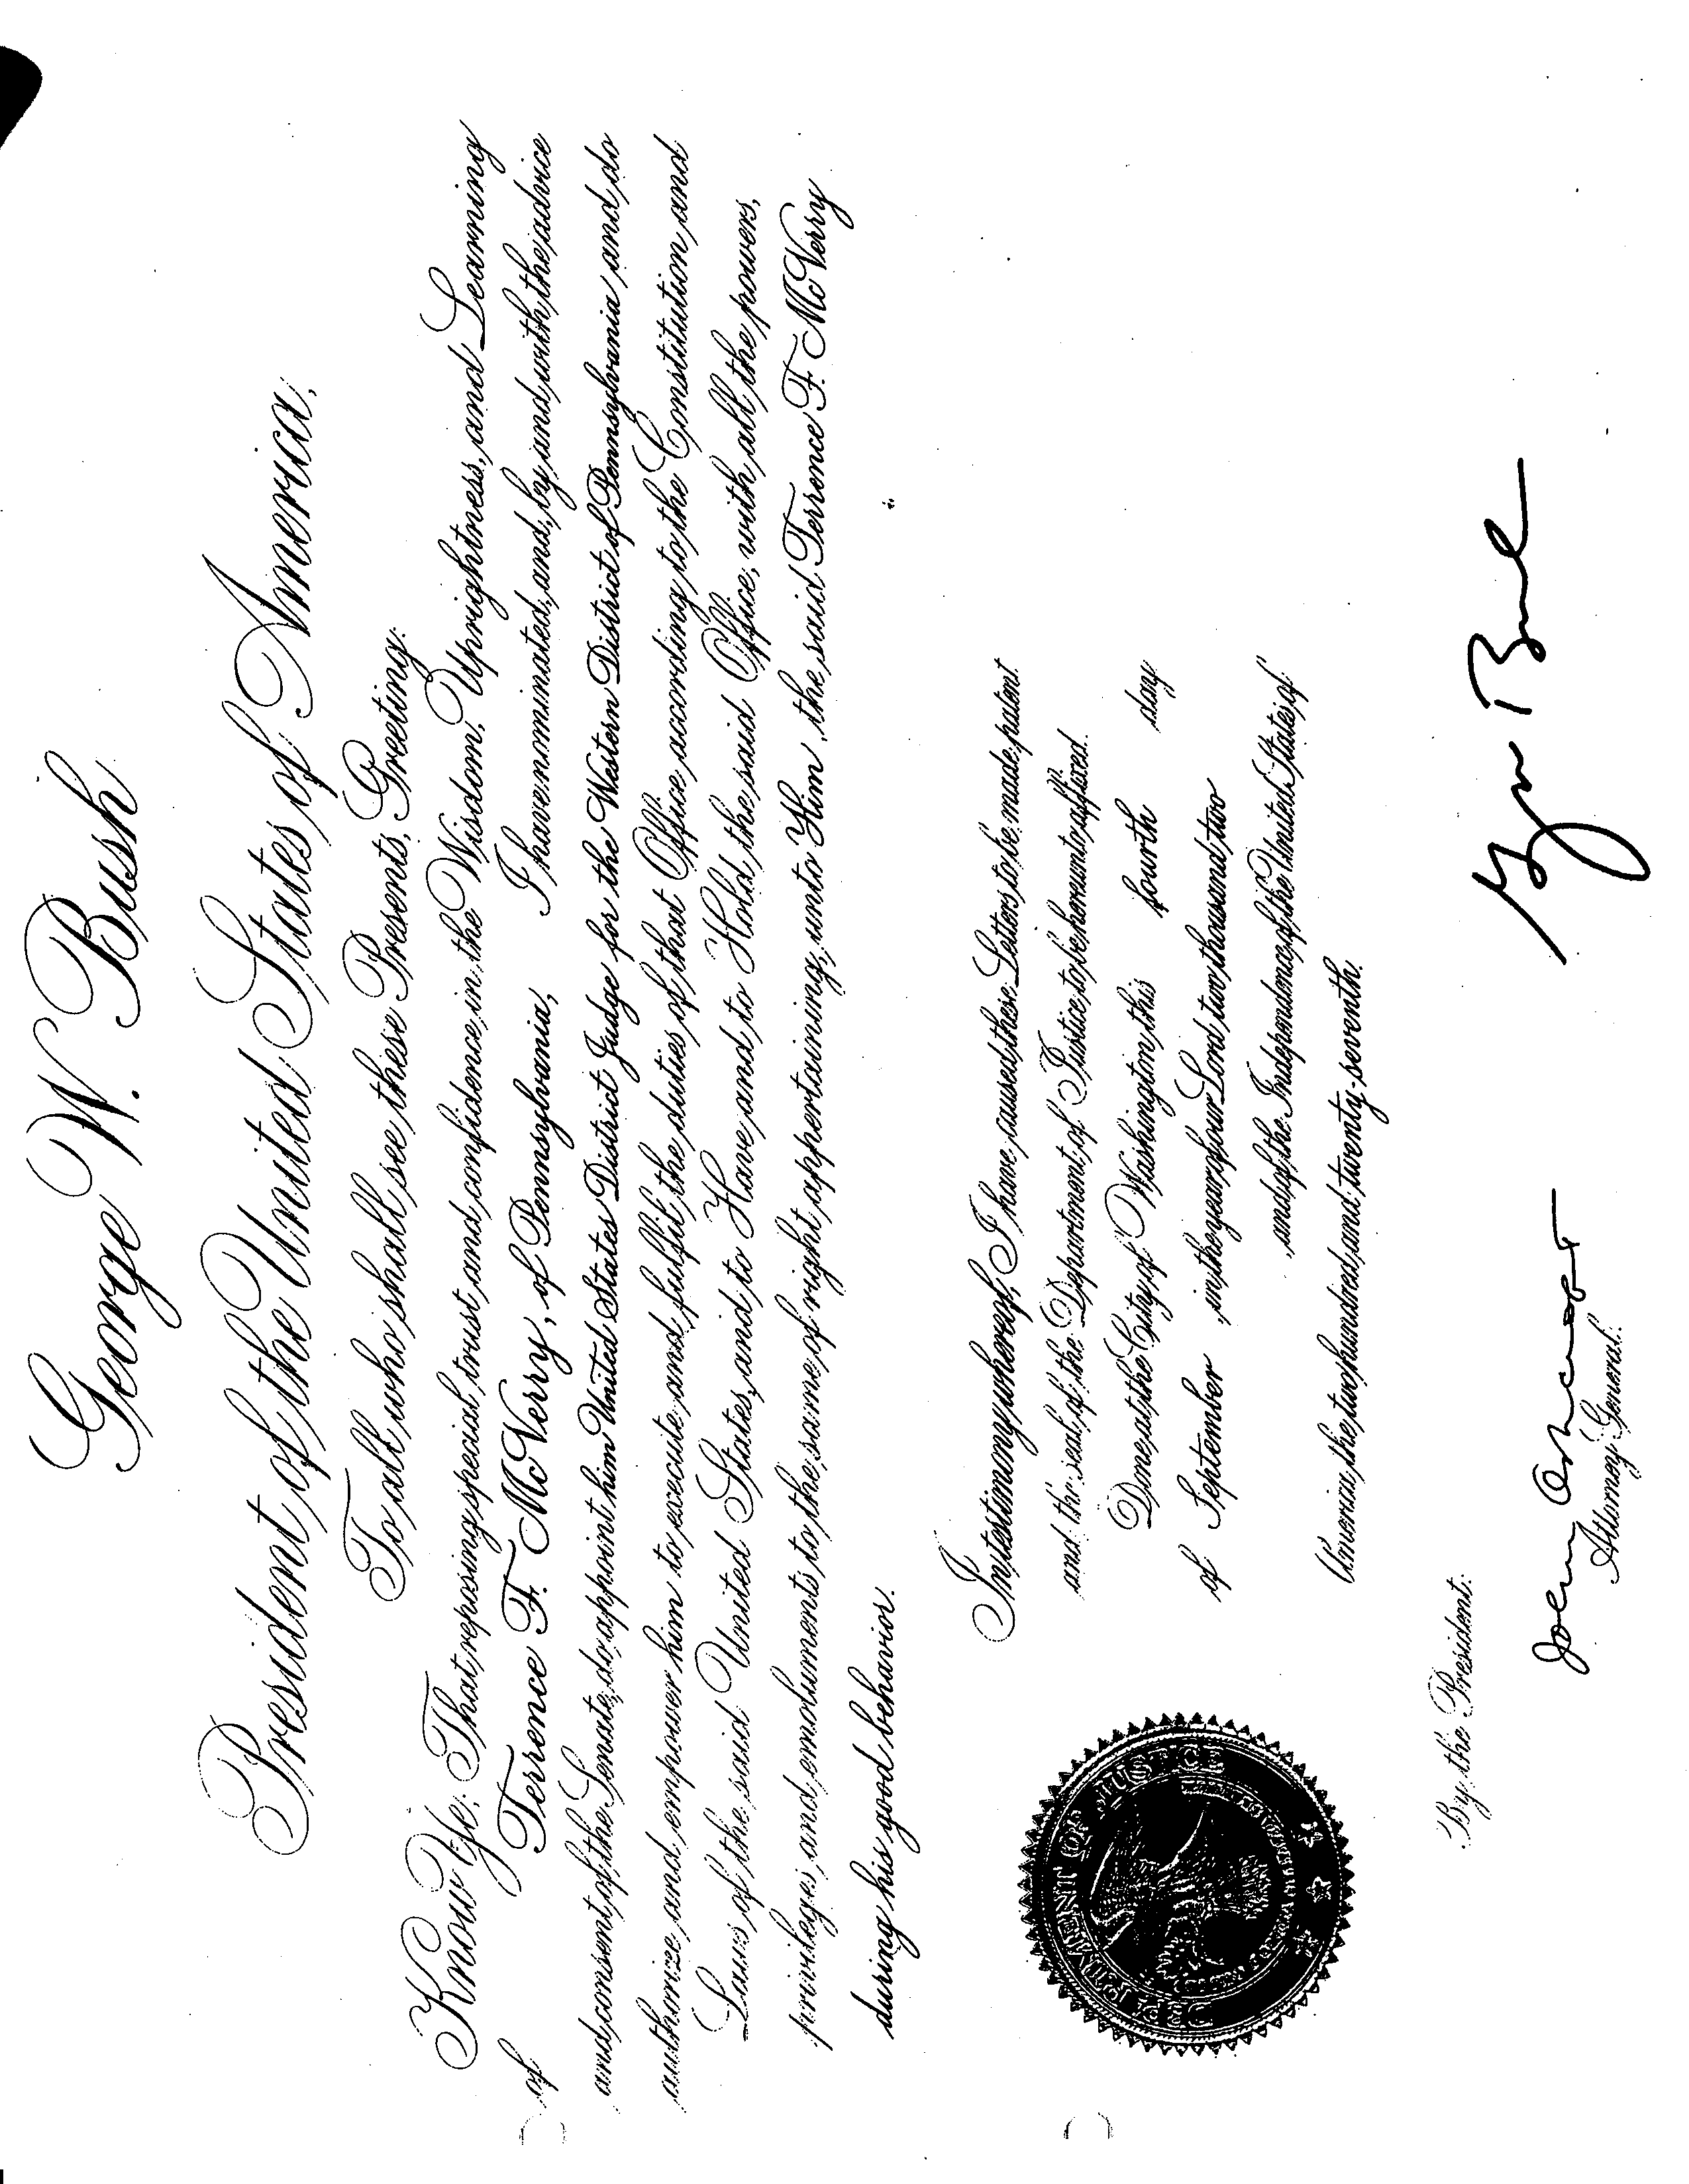 George W. Bush
President of the United States of America,
To all who shall see these Presents, Greeting:
Know Ye; That reposing special trust and confidence in the Wisdom, Uprightness, and Learning
of Terrence F. McVerry, of Pennsylvania, I have nominated, and, by and with the advice
and consent of the Senate, do appoint him United States District Judge for the Western District of Pennsylvania and do
authorize and empower him to execute and fulfil the duties of that Office according to the Constitution and
Laws of the said United States, and to Have and to Hold the said Office, with all the powers,
privileges and emoluments to the same of right appertaining, unto Him, the said Terrence F. McVerry
during his good behavior.
In testimony whereof, I have caused these Letters to be made patent
and the seal of the Department of Justice to be hereunto affixed.
Done at the City of Washington, this fourth day
of September in the year of our Lord two thousand two
and of the Independence of the United States of
America the two hundred and twenty-seventh.
DEPARTMENT OF JUSTICE
By the President:
George Bush
John Ashcroft
Attorney General.